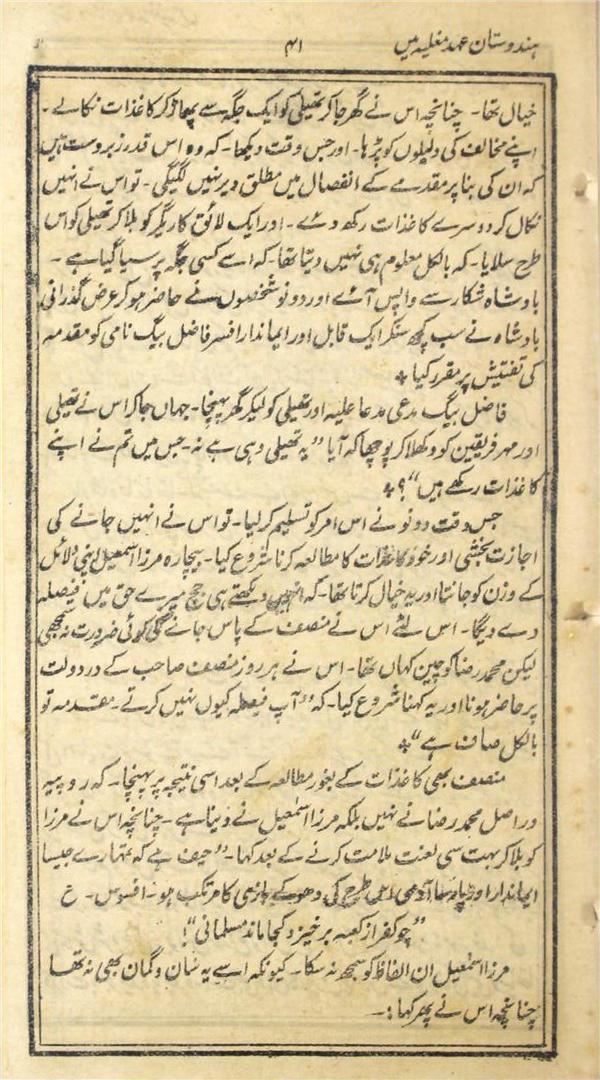 ہندوستان عہد مغلیہ میں ۴۱
خیال تھا۔ چنانچہ اس نے گھر جا کر تھیلی کو ایک جگہ سے پھاڑ کر کاغذات نکالے۔
اپنے مخالف کی دلیلوں کو پڑہا۔ اور جس وقت دیکھا۔ کہ وہ اس قدر زبردست ہیں
کہ ان کی بنا پر مقدمے کے انفصال میں مطلق دیر نہیں لگیگی۔ تو اس نے انہیں
نکال کر دوسرے کاغذات رکھ دئے۔ اور ایک لائق کاریگر کو بلا کر تھیلی کو اس
طرح سلایا۔ کہ بالکل معلوم ہی نہیں دیتا تھا۔ کہ اسے کسی جگہ پر سیا گیا ہے۔
بادشاہ شکار سے واپس آئے اور دونو شخصوں نے حاضر ہو کر عرض گذرانی
بادشاہ نے سب کچھ سنکر ایک قابل اور ایماندار افسر فاضل بیگ نامی کو مقدمہ
کی تفتیش پر مقرر کیا ٭
فاضل بیگ مدعی مدعا علیہ اور تھیلی کو لیکر گھر پہنچا۔ جہاں جا کر اس نے تھیلی
اور مہر فریقین کو دکھلا کر پوچھا کہ آیا ”یہ تھیلی وہی ہے نہ۔ جس میں تم نے اپنے
کاغذات رکھے ہیں“؟ ٭
جس وقت دونو نے اس امر کو تسلیم کر لیا۔ تو اس نے انہیں جانے کی
اجازت بخشی اور خود کاغذات کا مطالعہ کرنا شروع کیا۔ بیچارہ مرزا اسمٰعیل اپنی دلائل
کے وزن کو جانتا اور یہ خیال کرتا تھا۔ کہ انہیں دیکھتے ہی جج میرے حق میں فیصلہ
دے دیگا۔ اس لئے اس نے منصف کے پاس جانے کی کوئی ضرورت نہ سمجھی
لیکن محمد رضا کو چین کہاں تھا۔ اس نے ہر روز منصف صاحب کے در دولت
پر حاضر ہونا اور یہ کہنا شروع کیا۔ کہ ”آپ فیصلہ کیوں نہیں کرتے۔ مقدمہ تو
بالکل صاف ہے“ ٭
منصف بھی کاغذات کے بغور مطالعہ کے بعد اسی نتیجہ پر پہنچا۔ کہ روپیہ
دراصل محمد رضا نے نہیں بلکہ مرزا اسمٰعیل نے دینا ہے۔ چنانچہ اس نے مرزا
کو بلا کر بہت سی لعنت ملامت کرنے کے بعد کہا۔ ”حیف ہے کہ تمہارے جیسا
ایماندار اور پارسا آدمی اس طرح کی دھوکے بازی کا مرتکب ہو۔ افسوس۔ ع
”چو کفر از کعبہ برخیزد کجا ماند مسلمانی“!
مرزا اسمٰعیل ان الفاظ کو سمجھ نہ سکا۔ کیونکہ اسے یہ شان و گمان بھی نہ تھا
چنانچہ اس نے پھر کہا:۔